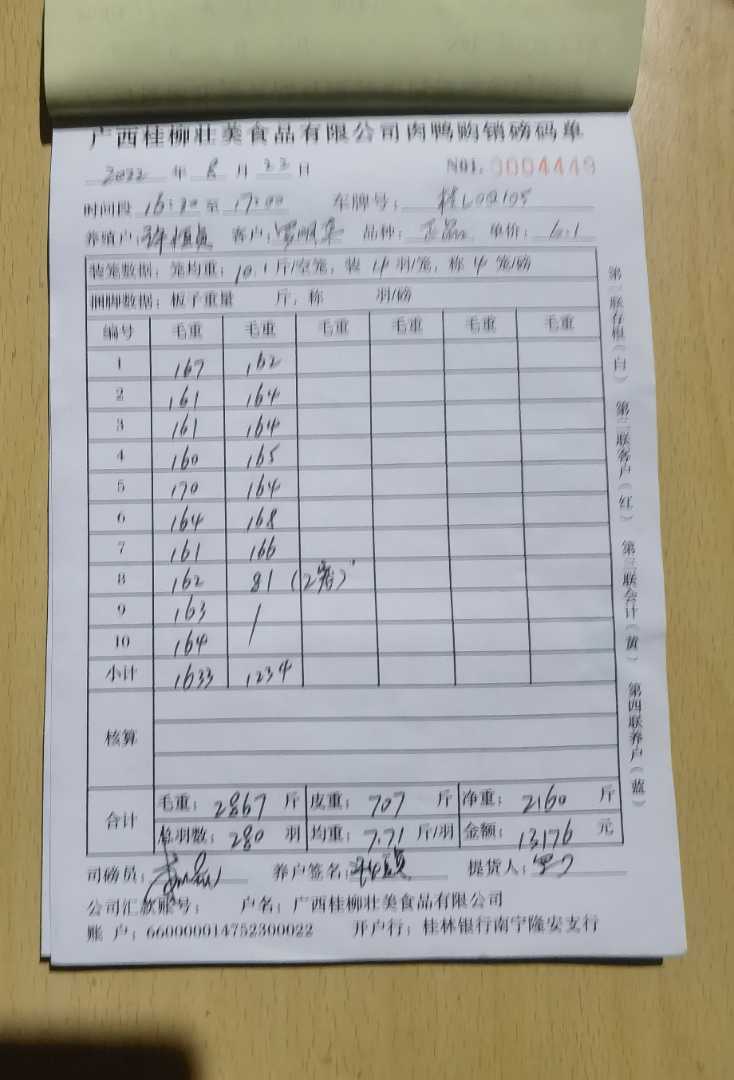 广西桂柳壮美食品有限公司肉鸭购销磅码单
2022 年 8 月 23 日 NO1. 0004449
时间段 16:20 至 17:00 车牌号: 桂L0Q105
养殖户: 客户: 品种: 正品 单价: 6.1
装笼数据: 笼均重: 10.1 斤/空笼, 装 14 羽/笼, 称 4 笼/磅
捆脚数据: 板子重量 斤, 称 羽/磅
编号 毛重 毛重 毛重 毛重 毛重 毛重
1 167 162
2 161 164
3 161 164
4 160 165
5 170 164
6 164 168
7 161 166
8 162 81 (2笼)
9 163 /
10 164
小计 1633 1234
核算
合计 毛重: 2867 斤 皮重: 707 斤 净重: 2160 斤
总羽数: 280 羽 均重: 7.71 斤/羽 金额: 13176 元
司磅员: 养户签名: 提货人:
公司汇款账号: 户名: 广西桂柳壮美食品有限公司
账户: 660000014752300022 开户行: 桂林银行南宁隆安支行
第一联存根(白) 第二联客户(红) 第三联会计(黄) 第四联养户(蓝)